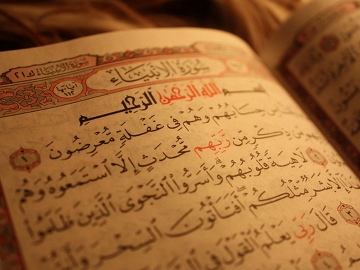 سُورَةُ الْأَنْبِيَاءِ ٢١
سُورَةُ الْأَنْبِيَاءِ
بِسْمِ اللهِ الرَّحْمٰنِ الرَّحِيمِ
حِسَابُهُمْ وَهُمْ فِي غَفْلَةٍ مُعْرِضُونَ ١
مِنْ ذِكْرٍ مِنْ رَبِّهِمْ مُحْدَثٍ إِلَّا اسْتَمَعُوهُ وَهُمْ
لَاهِيَةً قُلُوبُهُمْ وَأَسَرُّوا النَّجْوَى الَّذِينَ ظَلَمُوا
إِلَّا بَشَرٌ مِثْلُكُمْ أَفَتَأْتُونَ السِّحْرَ
قَالَ رَبِّي يَعْلَمُ الْقَوْلَ فِي